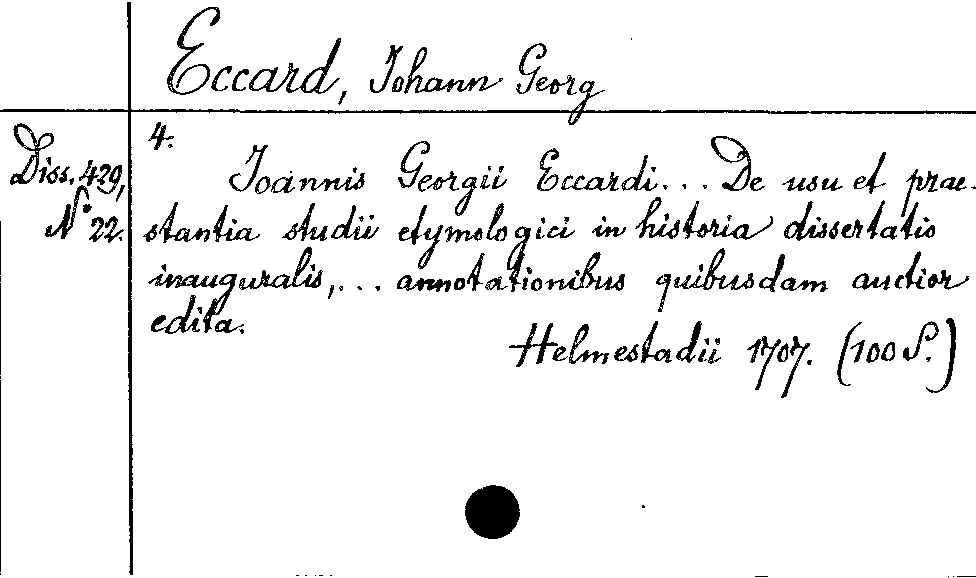 Eccard, Johann Georg
Diss. 429,
N° 22.
4.
Joannis Georgii Eccardi... De usu et prae-
stantia studii etymologici in historia dissertatio
inauguralis,... annotationibus quibusdam auctior
edita.
Helmestadii 1707. (100 S.)